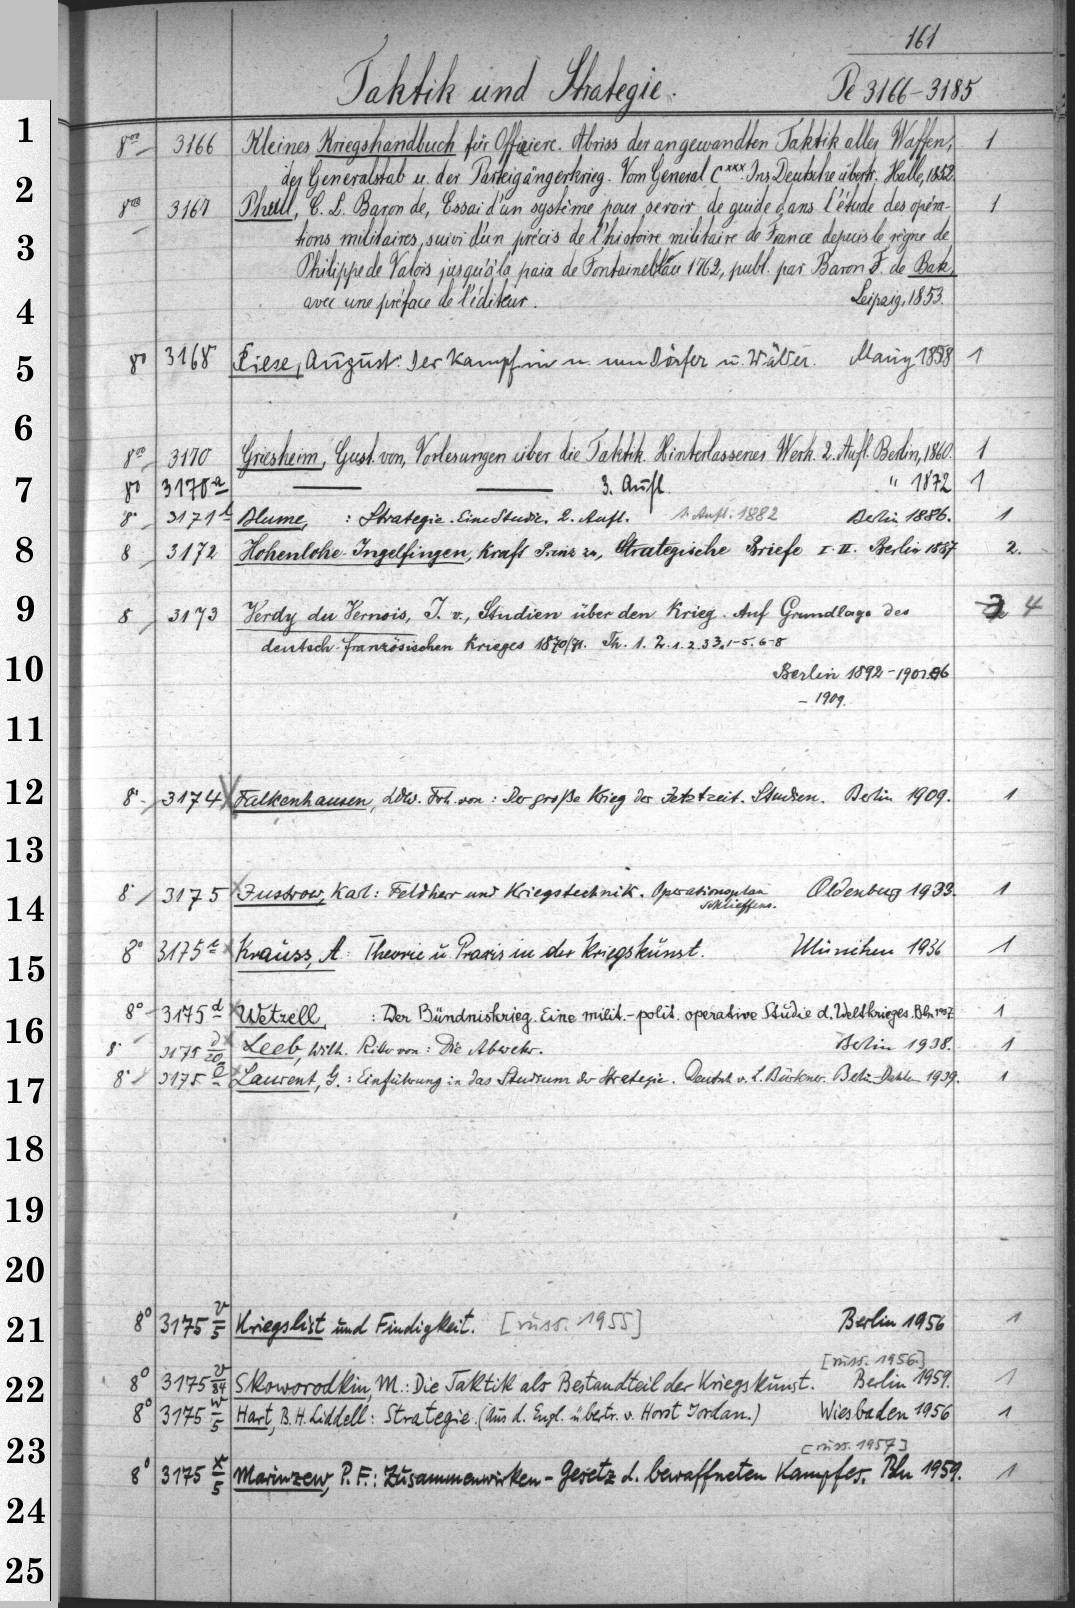 161
Taktik und Strategie.
Pe 3166-3185
1
8vo 3166 Kleines Kriegshandbuch für Offiziere. Abriss der angewandten Taktik aller Waffen, 1
2
des Generalstab u. der Parteigängerkrieg. Vom General C xxx Ins Deutsche übertr. Halle, 1852.
8vo 3167 Pheul, C. L. Baron de, Essai d'un système pour servir de guide dans l'étude des opéra- 1
3
tions militaires, suivi d'un précis de l'histoire militaire de France depuis le règne de
Philippe de Valois jusqu'à la paix de Fontainebleau 1762, publ. par Baron F. de Bak,
4
avec une préface de l'éditeur. Leipzig, 1853.
5
8o 3168 Fiese, August: Der Kampf in u. um Dörfer u. Wälder. 1858 1
6
8vo 3170 Griesheim, Gust. von, Vorlesungen über die Taktik. Hinterlassenes Werk. 2. Aufl. Berlin, 1860. 1
7
8o 3170a — — 3. Aufl. " 1872 1
8° 3171 Blume, : Strategie. Eine Studie. 2. Aufl. 1. Aufl. 1882 Berlin 1886. 1
8
8 3172 Hohenlohe-Ingelfingen, Kraft Prinz zu, Strategische Briefe I-II. Berlin 1887 2.
9
8 3173 Verdy du Vernois, J. v., Studien über den Krieg. Auf Grundlage des 4
deutsch-französischen Krieges 1870/71. Th. 1. 2. 1. 2. 3 3. 1-5. 6-8
10
Berlin 1892-
-1909.
11
12
8° 3174 Falkenhausen, Frh. von: Der große Krieg der Jetztzeit. Studien. Berlin 1909. 1
13
8° 3175 Justrow, Karl: Feldherr und Kriegstechnik. Operationsplan Oldenburg 1933. 1
Schlieffens.
14
8° 3175 Krauss, A.: Theorie u. Praxis in der Kriegskunst. München 1936 1
15
8° 3175 d Wetzell, : Der Bündniskrieg. Eine milit.-polit. operative Studie d. Weltkrieges. Bln. 1937 1
16
8° 3175 Leeb, Wilh. Ritter von: Die Abwehr. Berlin 1938. 1
17
8° 3175 e Laurent, G.: Einführung in das Studium der Strategie. Deutsch v. L. Bürkner. Berlin-Dahlem 1939. 1
18
19
20
21
8° 3175 v/5 Kriegslist und Findigkeit. [russ. 1955] Berlin 1956 1
[russ. 1956.]
22
8° 3175 v/34 Skoworodkin, M.: Die Taktik als Bestandteil der Kriegskunst. Berlin 1959. 1
8° 3175 w/5 Hart, B.H. Liddell: Strategie. (Aus d. Engl. übertr. v. Horst Jordan.) Wiesbaden 1956 1
23
[russ. 1957]
8° 3175 x/5 Marinzew, P. F.: Zusammenwirken-Gesetz d. bewaffneten Kampfes. Bln 1959. 1
24
25